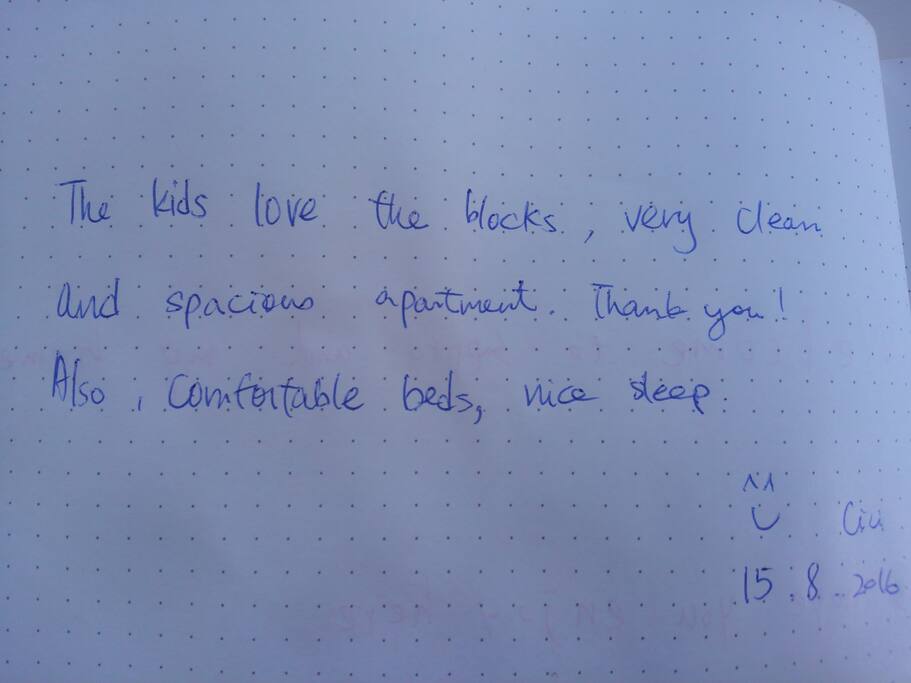 The kids love the blocks, very clean
and spacious apartment. Thank you!
Also, comfortable beds, nice sleep.
Cici
15.8.2016